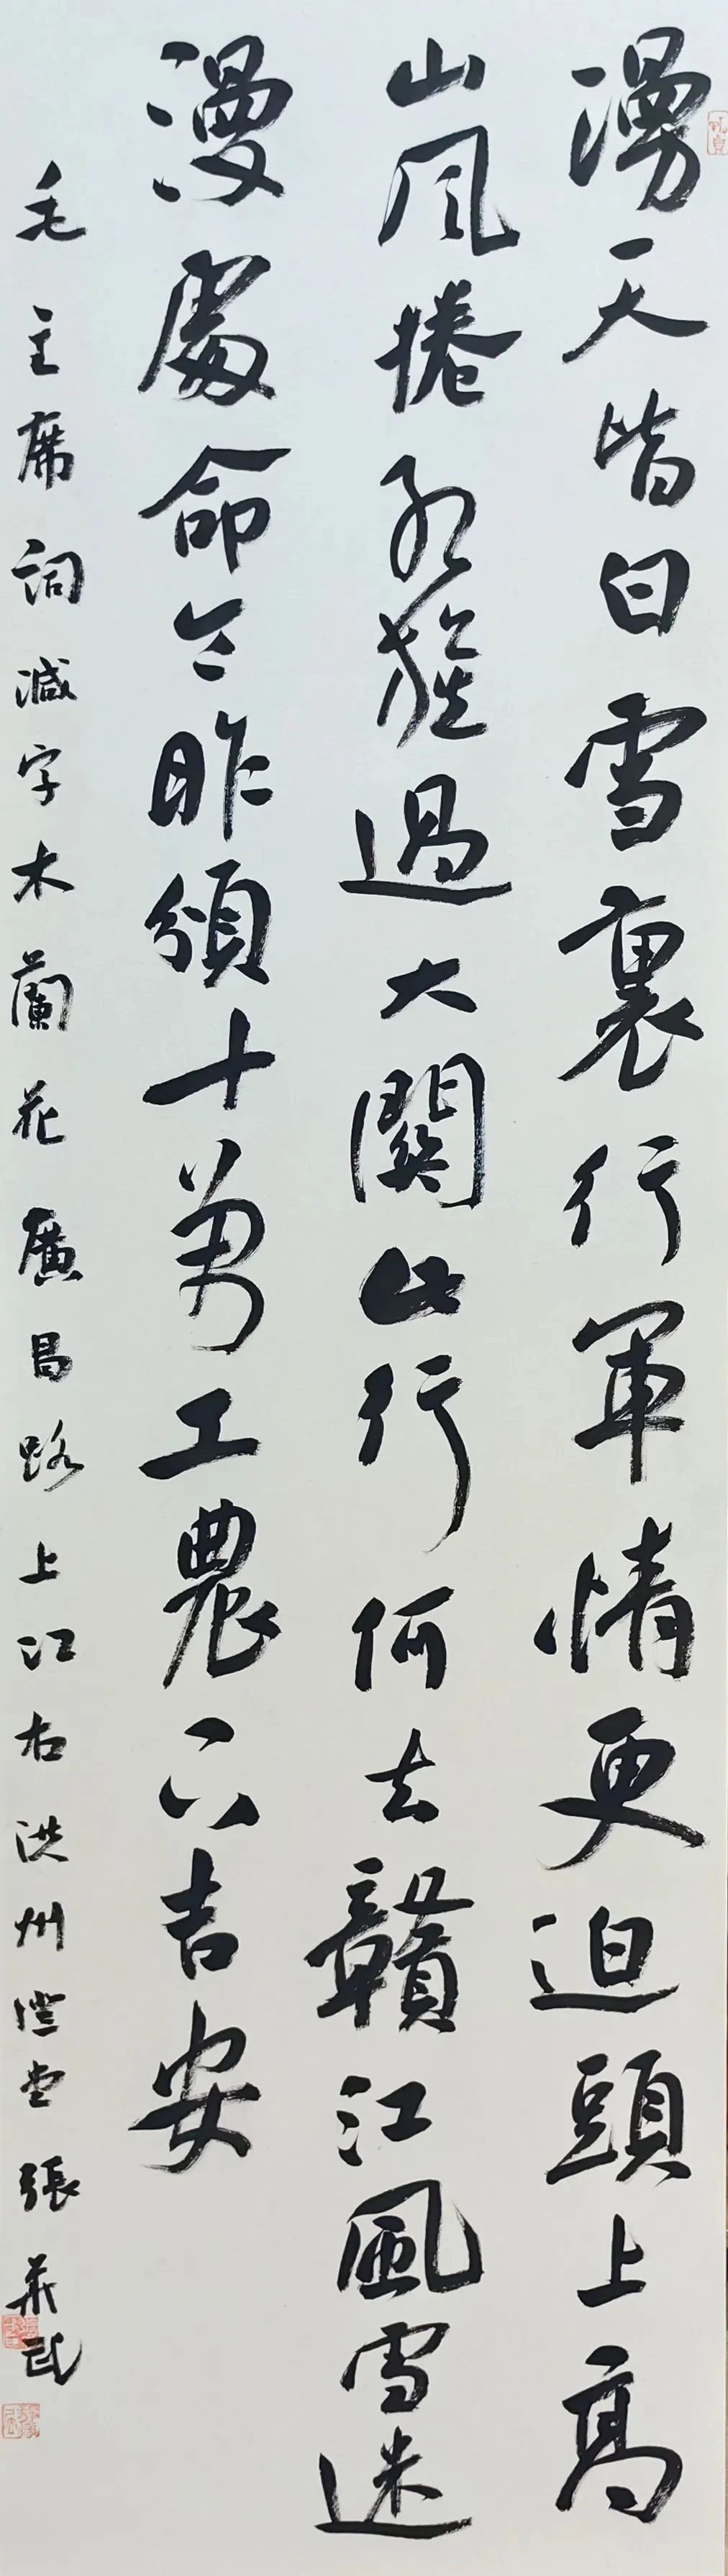 漫天皆白雪裏行軍情更迫頭上高
山風捲紅旗過大關此行何去贛江風雪迷
漫處命令昨頒十萬工農下吉安
毛主席詞減字木蘭花廣昌路上江右洪州澄堂張武